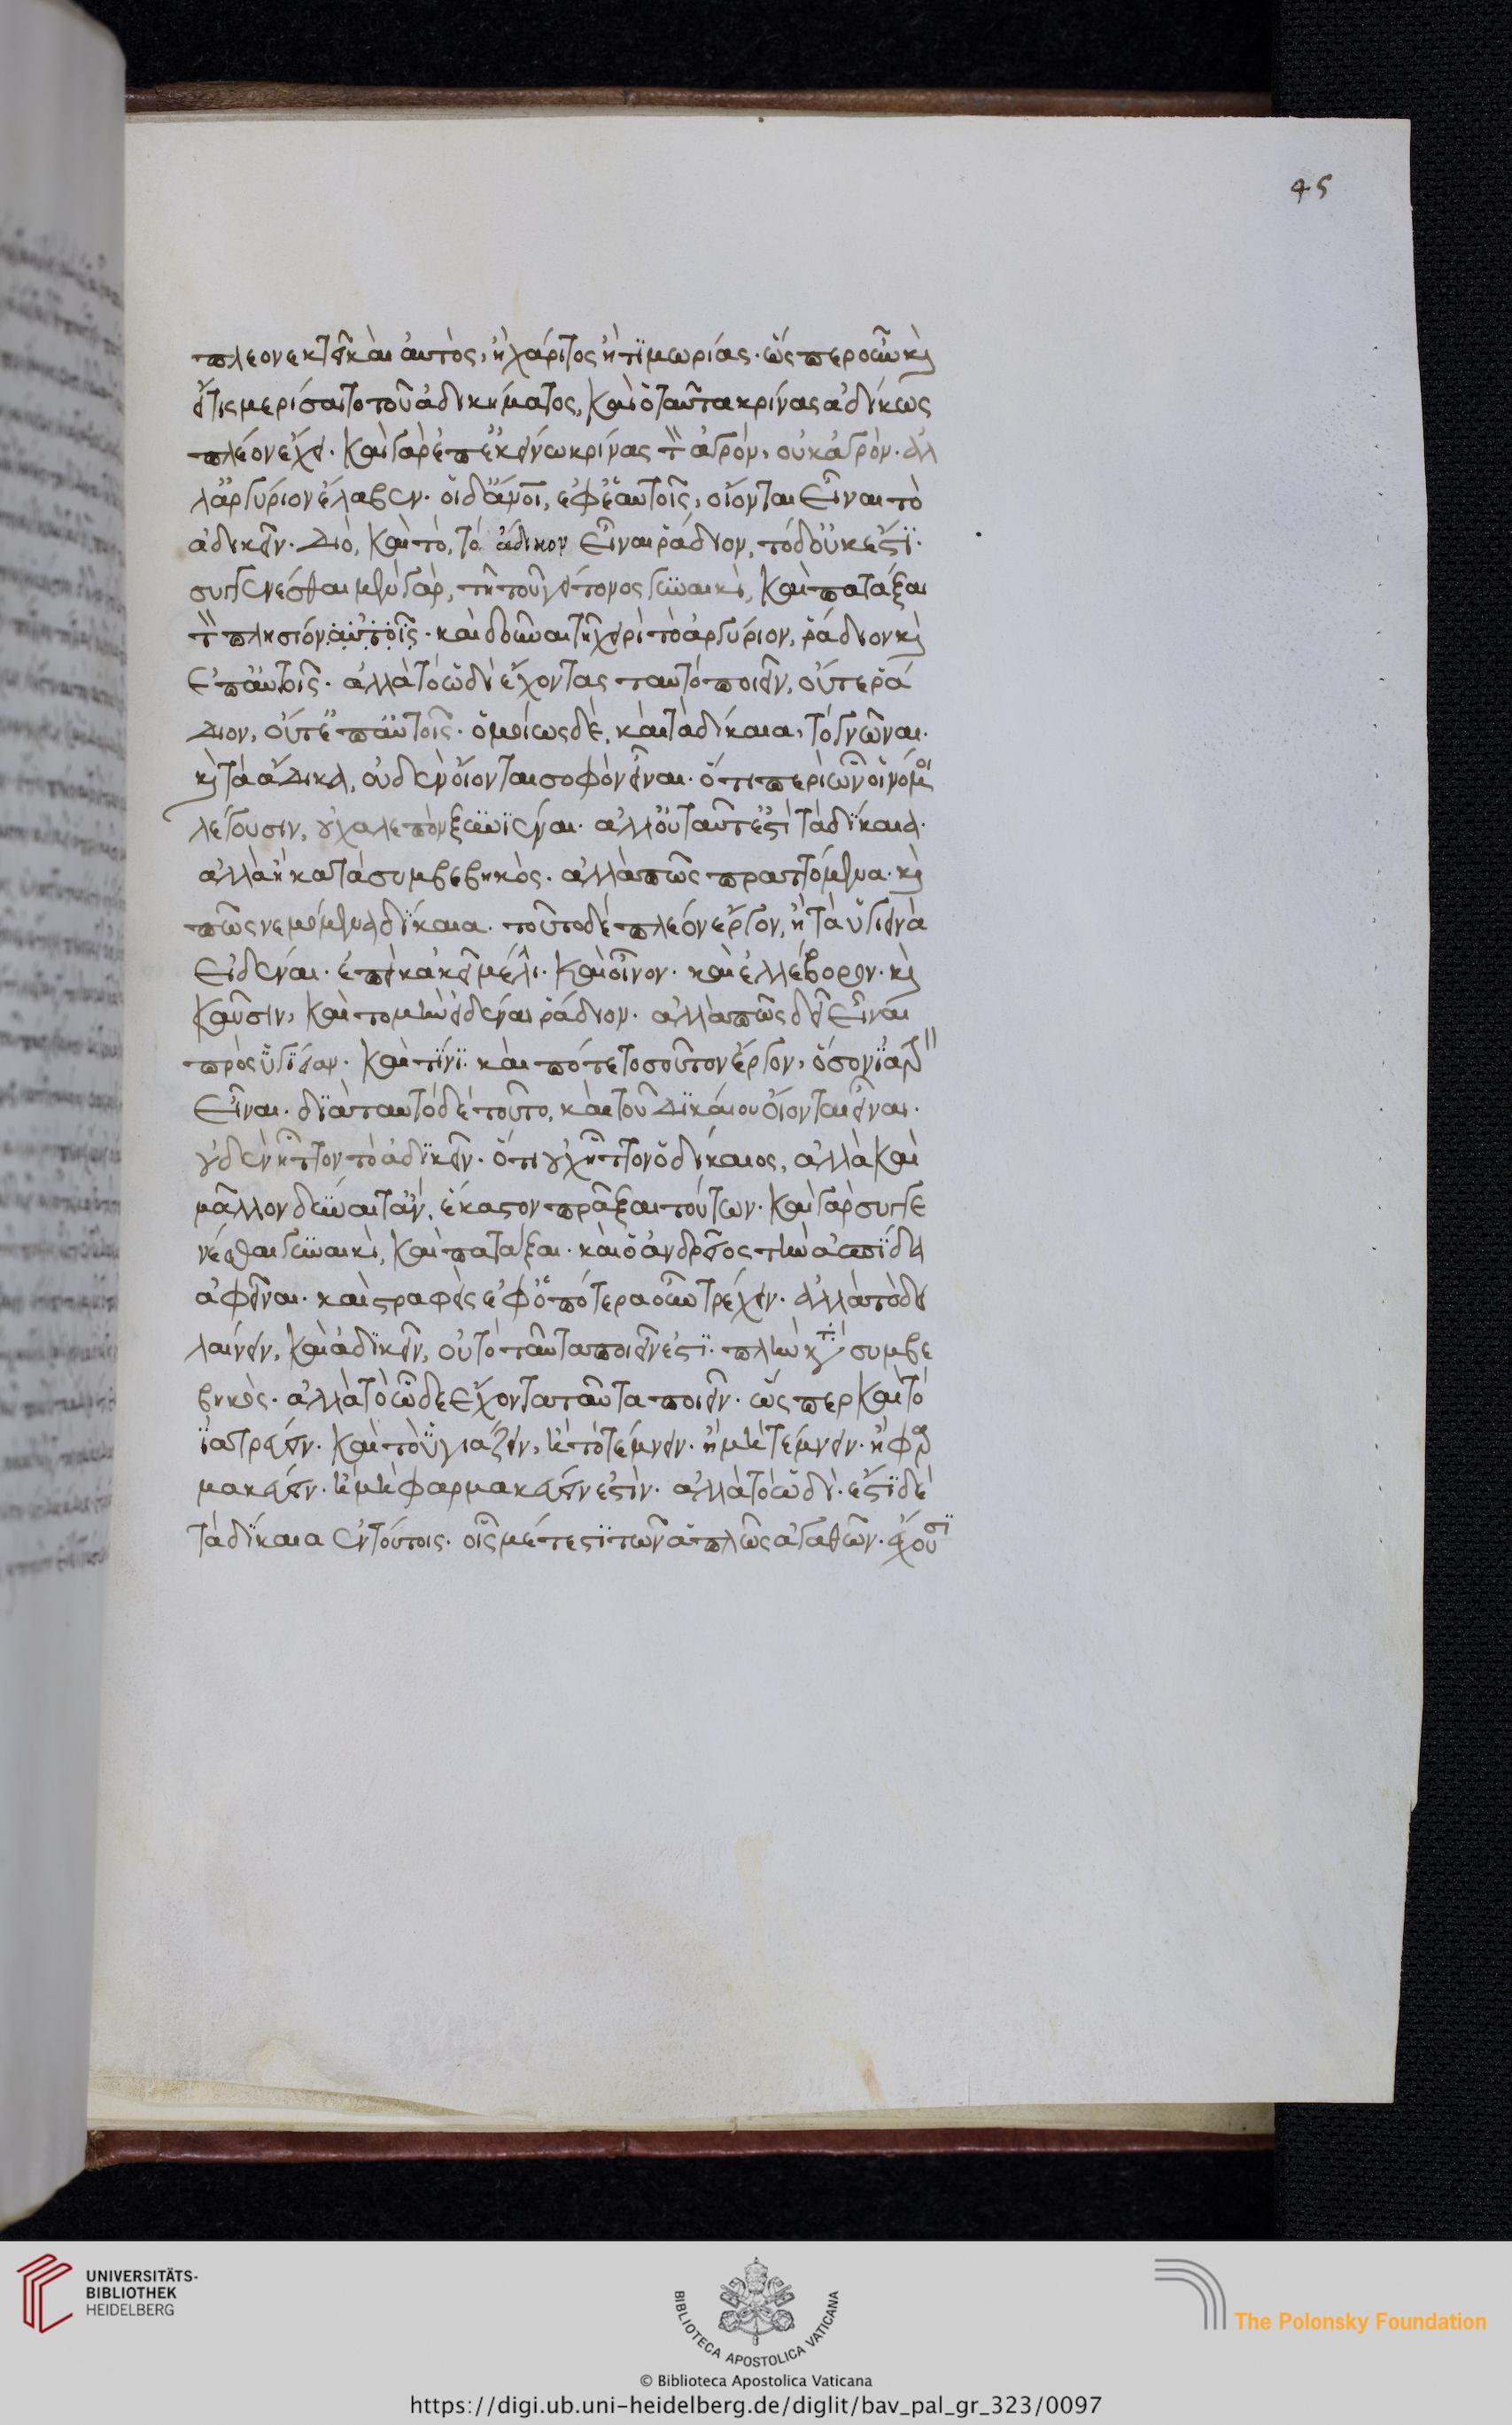 45
πλεονεκτεῖ καὶ αὐτὸς, ἢ χάριτος ἢ τϊμωρίας. ὥσπερ οὖν κὶ
εἴ τις μερίσαιτο τοῦ ἀδικήματος, καὶ ὁ ταῦτα κρίνας ἀδίκως
πλέον ἔχει. καὶ γὰρ ἐπ' ἐκείνω κρίνας τὸν ἀγρὸν, οὐκ ἀγρὸν. ἀλ
λ' ἀργύριον ἔλαβεν. οἱ δ' ἄνοι, ἐφ' ἑαυτοῖς, οἴονται εἶναι τὸ
ἀδικεῖν. Διὸ, καὶ τὸ, τὸ ἄδικον εἶναι ῥάδιον, τὸ δ' οὐκ ἔστϊ.
συγγενέσθαι μὲν γὰρ, τῆ τοῦ γείτονος γυναικὶ, καὶ πατάξαι
τὸν πλησιόν αὐτοῖς. καὶ δοῦναι τῆ χειρὶ τὸ ἀργύριον, ῥάδιον κὶ
ἐπ' αὐτοῖς. ἀλλὰ τὸ ὡδὶ ἔχοντας ταυτὸ ποιεῖν, οὔτε ῥά
διον, οὔτ' ἐπ' αὐτοῖς. ὁμοίως δὲ, καὶ τὰ δίκαια, τὸ γνῶναι.
κὶ τὰ ἄδικα, οὐδὲν οἴονται σοφὸν εἶναι. ὅτι περὶ ὧν οἱ νόμοι
λέγουσιν, οὐ χαλεπὸν ξυνϊέναι. ἀλλ' οὐ ταῦτ' ἐστὶ τὰ δϊκαια.
ἀλλὰ ἢ κατὰ συμβεβηκὸς. ἀλλὰ πῶς πραττόμενα. κὶ
πῶς νεμόμενα δϊκαια. τοῦτο δὲ πλέον ἔργον, ἢ τὰ ὑγιεινὰ
εἰδέναι. ἐπεὶ κἀκεῖ μέλι. καὶ οἶνον. καὶ ἐλλέβορον. κὶ
καῦσιν, καὶ τομὴν εἰδέναι ῥάδιον. ἀλλὰ πῶς δεῖ εἶναι
πρὸς ὑγϊειαν. καὶ τίνϊ. καὶ πότε τοσοῦτον ἔργον, ὅσον ϊατρὸν
εἶναι. δϊὰ ταυτὸ δὲ τοῦτο, καὶ τοῦ Δϊκαίου οἴονται εἶναι.
οὐδὲν ἧττον τὸ ἀδϊκεῖν. ὅτι οὐχ ἧττον ὁ δίκαιος, ἀλλὰ καὶ
μᾶλλον δύναιτ' ἂν, ἕκαστον πρᾶξαι τούτων. καὶ γὰρ συγγε
νέσθαι γυναικὶ, καὶ πατάξαι. καὶ ὁ ἀνδρεῖος τὴν ἀσπϊδα
ἀφεῖναι. καὶ στραφεὶς ἐφ' ὁπότερα οὖν τρέχειν. ἀλλὰ τὸ δει
λαίνειν, καὶ ἀδϊκεῖν, οὐ τὸ ταῦτα ποιεῖν ἐστϊ. πλὴν κατὰ συμβε
βηκὸς. ἀλλὰ τὸ ὧδε ἔχοντα ταῦτα ποιεῖν. ὥσπερ καὶ τὸ
ϊατρεύειν. καὶ τὸ ὑγιάζειν, οὐ τὸ τέμνειν. ἢ μὴ τέμνειν. ἢ φαρ
μακεύειν. ἢ μὴ φαρμακεύειν ἐστὶν. ἀλλὰ τὸ ὡδὶ. ἔστϊ δὲ
τὰ δϊκαια ἐν τούτοις. οἷς μέτεστϊ τῶν ἁπλῶς ἀγαθῶν. ἔχουσϊ
UNIVERSITÄTS-
BIBLIOTHEK
HEIDELBERG
BIBLIOTECA APOSTOLICA VATICANA
The Polonsky Foundation
© Biblioteca Apostolica Vaticana
https://digi.ub.uni-heidelberg.de/diglit/bav_pal_gr_323/0097